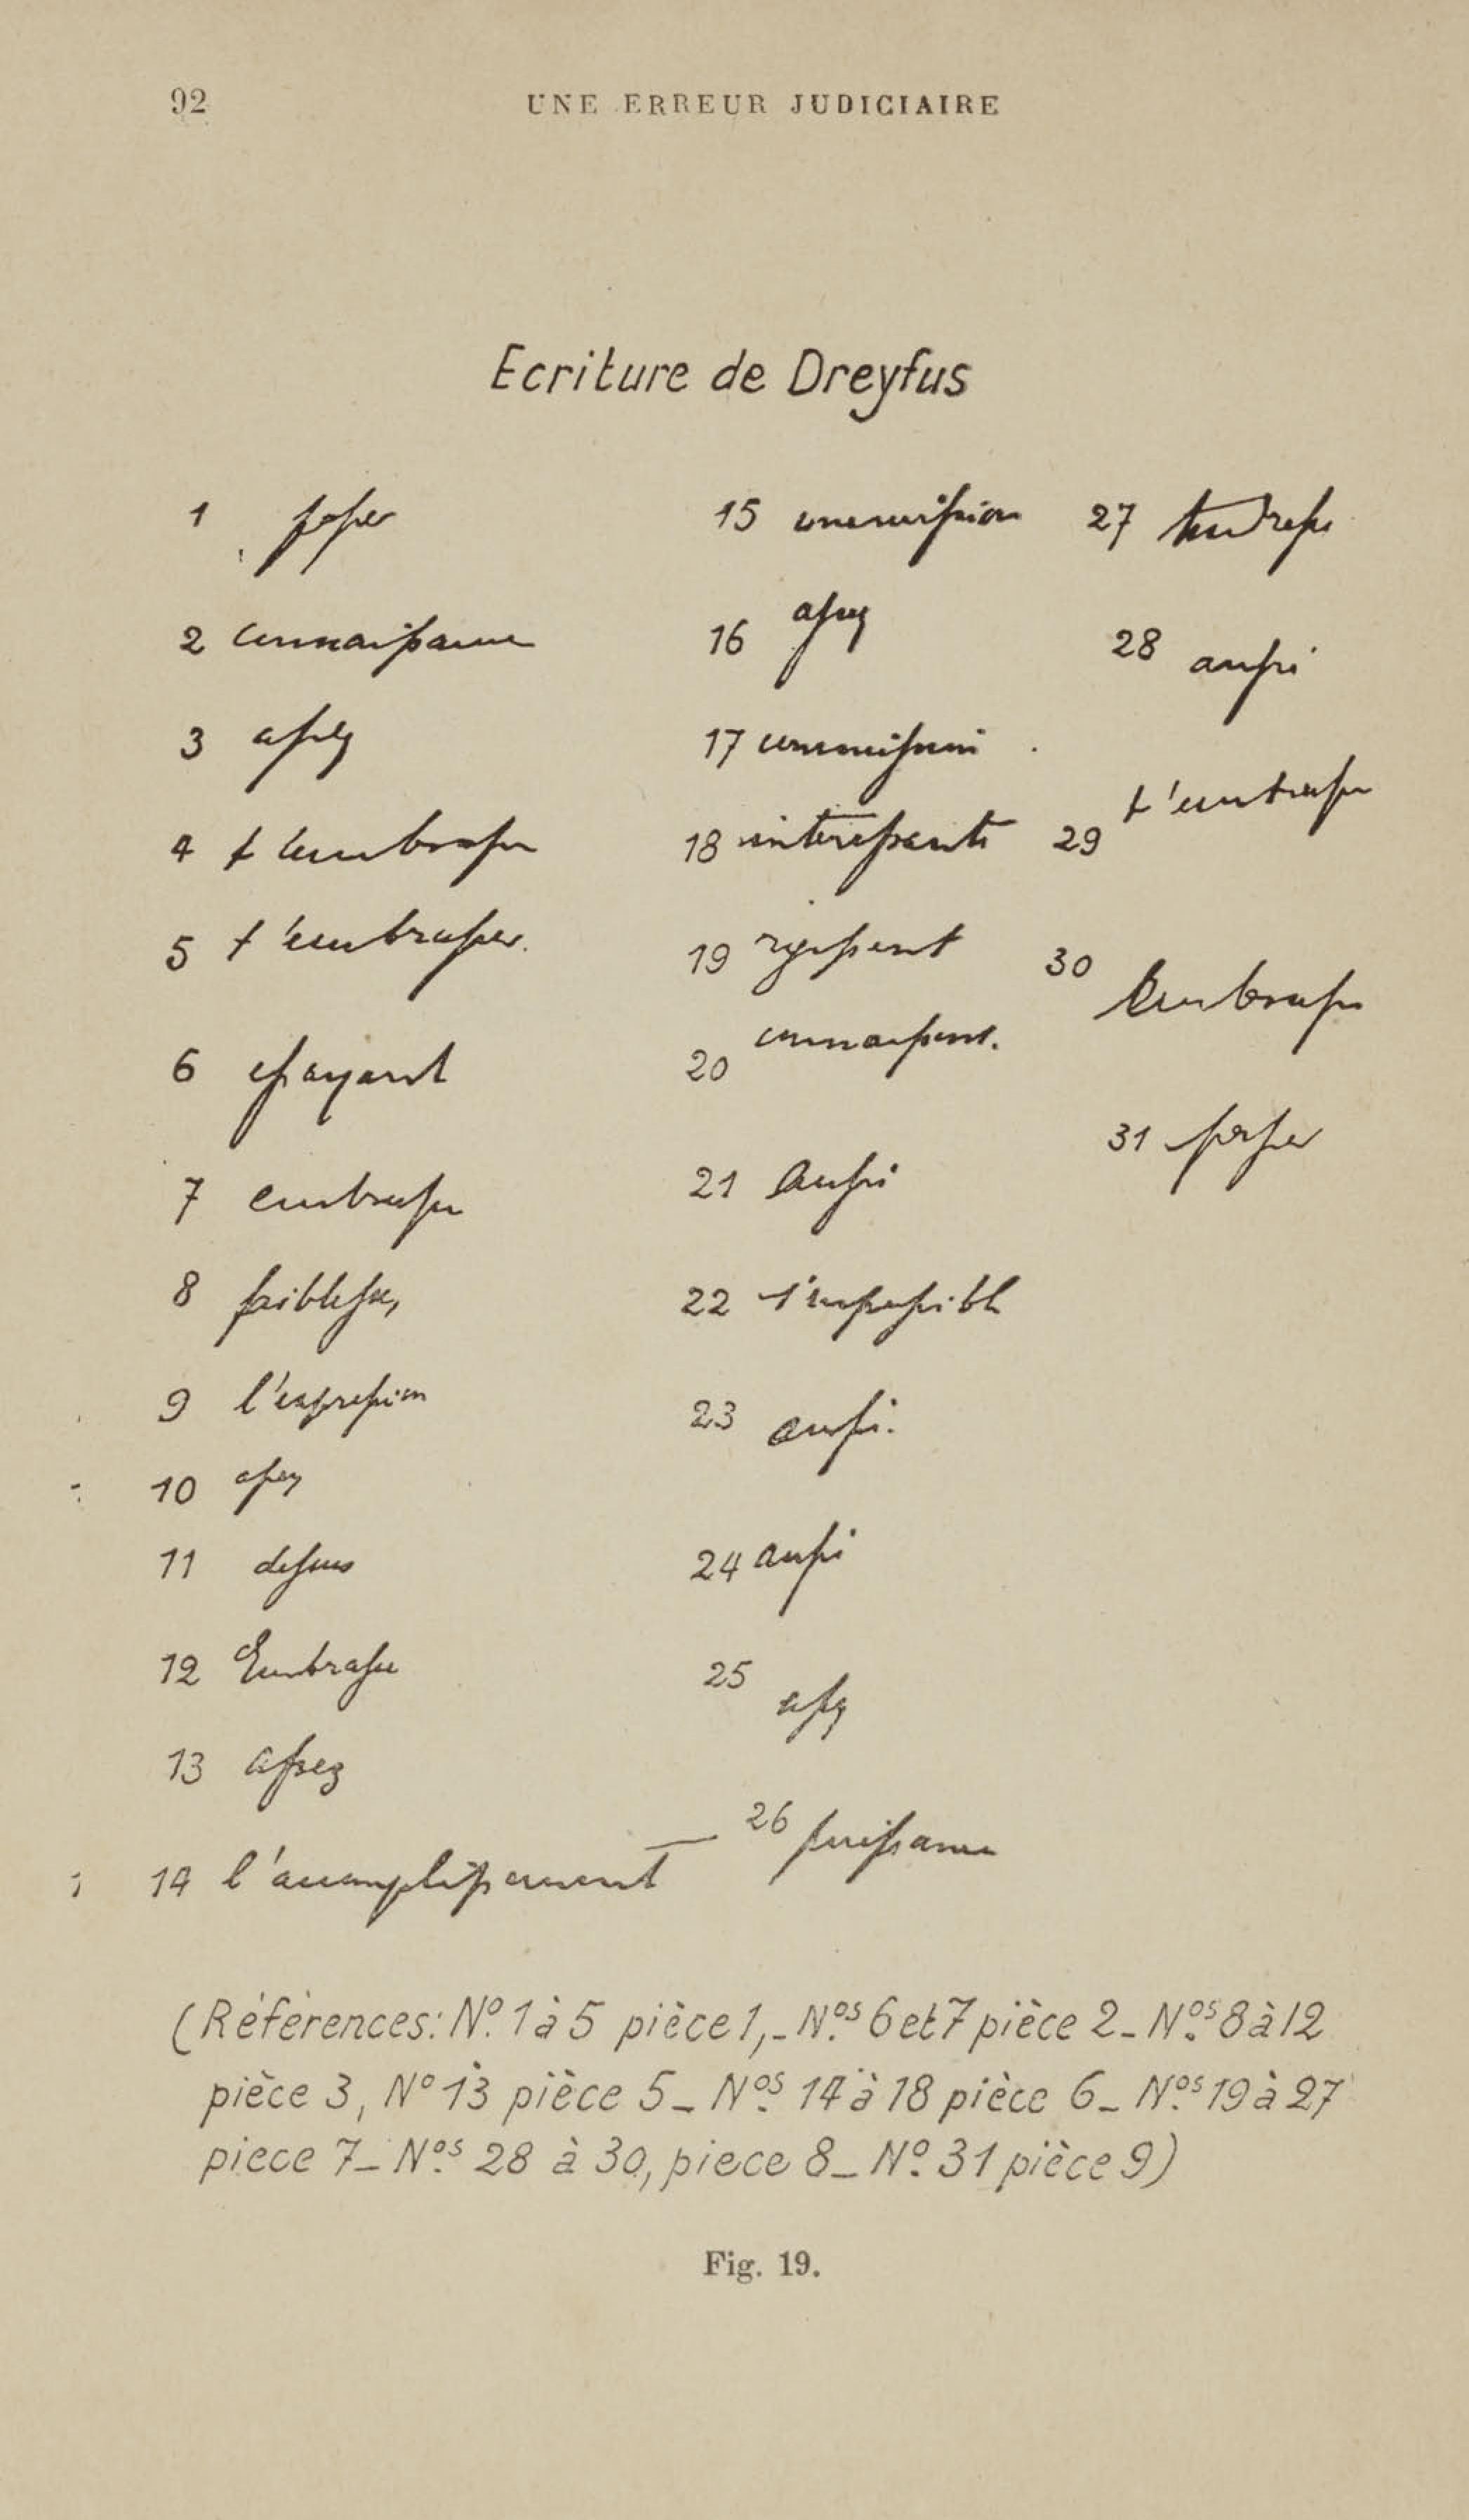 92
UNE ERREUR JUDICIAIRE
Ecriture de Dreyfus
1 passer
2 connaissance
3 assez
4 t'embrasse
5 t'embrasser.
6 essayant
7 embrasse
8 faiblesse,
9 l'expression
10 assez
11 dessus
12 Embrasse
13 assez
14 l'accomplissement
15
16 assez
17
18 intéressante
19
20 connaissent.
21 Aussi
22 l'impossible
23 aussi.
24 aussi
25 assez
26 puissance
27 tendresse
28 aussi
29 t'embrasse
30 Embrasse
31 passer
(Références: N.º 1 à 5 pièce 1,_ N.ºs 6 et 7 pièce 2_ N.ºs 8 à 12
pièce 3, Nº 13 pièce 5_ N.ºs 14 à 18 pièce 6_ N.ºs 19 à 27
piece 7_ N.ºs 28 à 30, piece 8_ N.º 31 pièce 9)
Fig. 19.